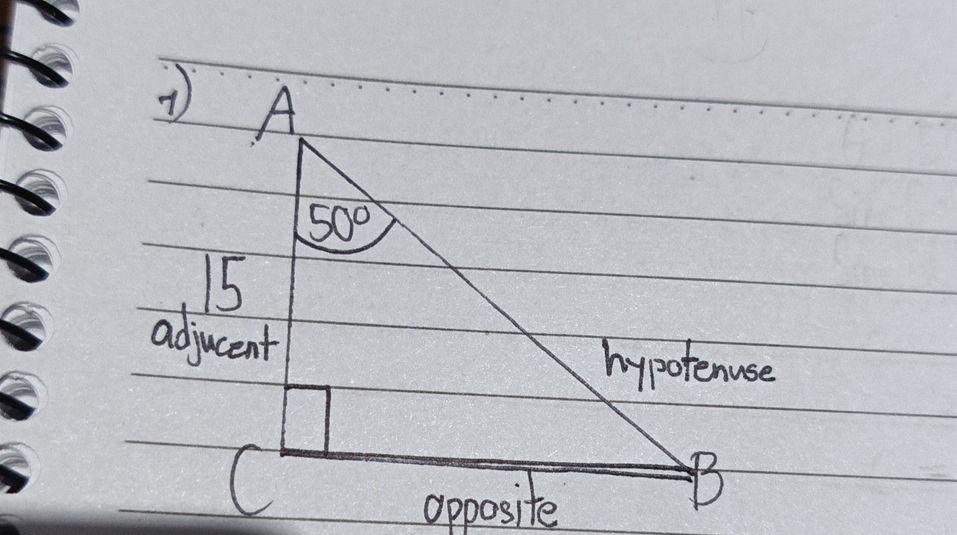 1)
A
50°
15
adjucent
hypotenuse
C
B
opposite